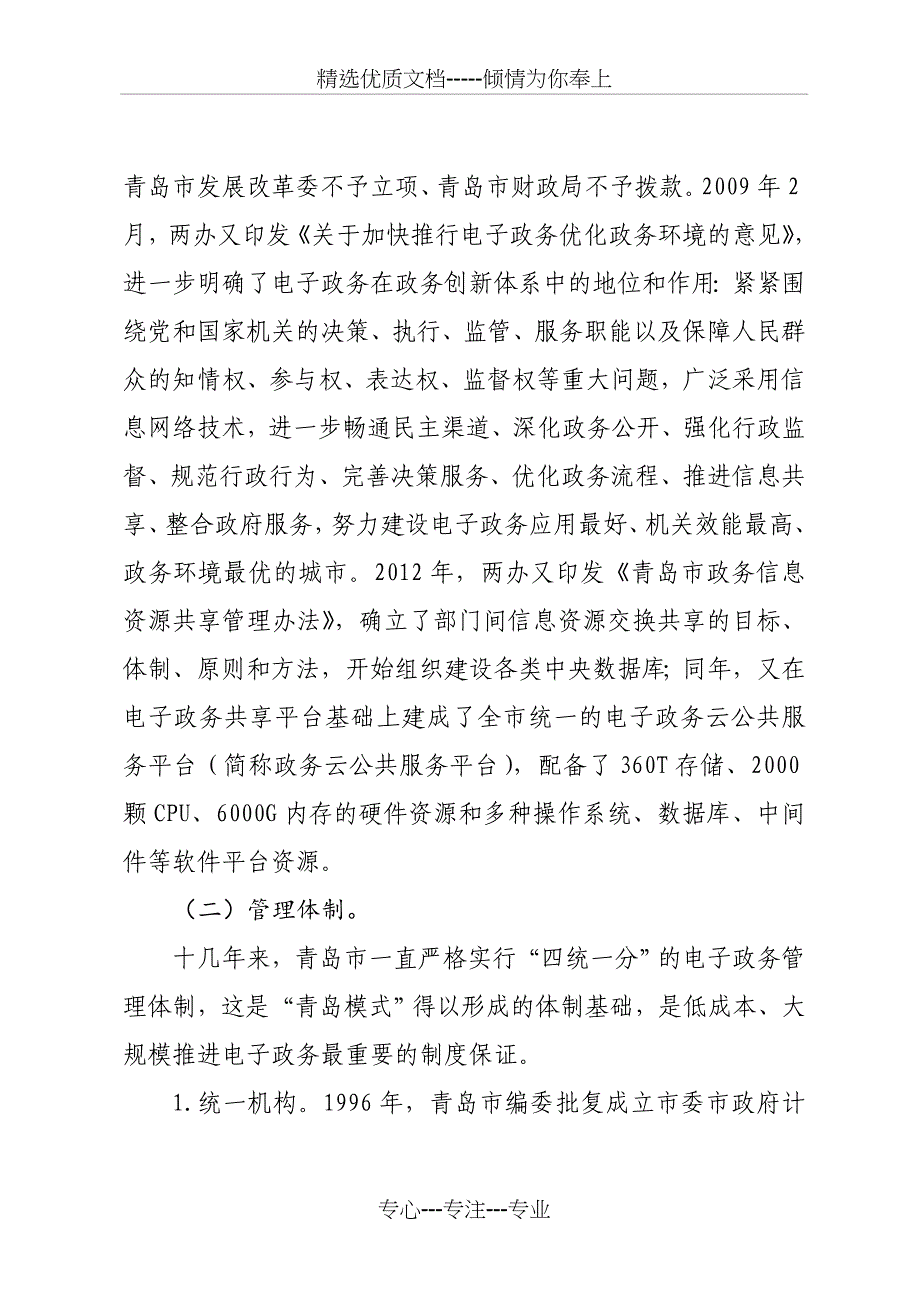 精选优质文档-----倾情为你奉上
青岛市发展改革委不予立项、青岛市财政局不予拨款。2009 年 2
月，两办又印发《关于加快推行电子政务优化政务环境的意见》，
进一步明确了电子政务在政务创新体系中的地位和作用：紧紧围
绕党和国家机关的决策、执行、监管、服务职能以及保障人民群
众的知情权、参与权、表达权、监督权等重大问题，广泛采用信
息网络技术，进一步畅通民主渠道、深化政务公开、强化行政监
督、规范行政行为、完善决策服务、优化政务流程、推进信息共
享、整合政府服务，努力建设电子政务应用最好、机关效能最高、
政务环境最优的城市。2012 年，两办又印发《青岛市政务信息
资源共享管理办法》，确立了部门间信息资源交换共享的目标、
体制、原则和方法，开始组织建设各类中央数据库；同年，又在
电子政务共享平台基础上建成了全市统一的电子政务云公共服
务平台（简称政务云公共服务平台），配备了 360T 存储、2000
颗 CPU、6000G 内存的硬件资源和多种操作系统、数据库、中间
件等软件平台资源。
（二）管理体制。
十几年来，青岛市一直严格实行“四统一分”的电子政务管
理体制，这是“青岛模式”得以形成的体制基础，是低成本、大
规模推进电子政务最重要的制度保证。
1.统一机构。1996 年，青岛市编委批复成立市委市政府计
专心---专注---专业